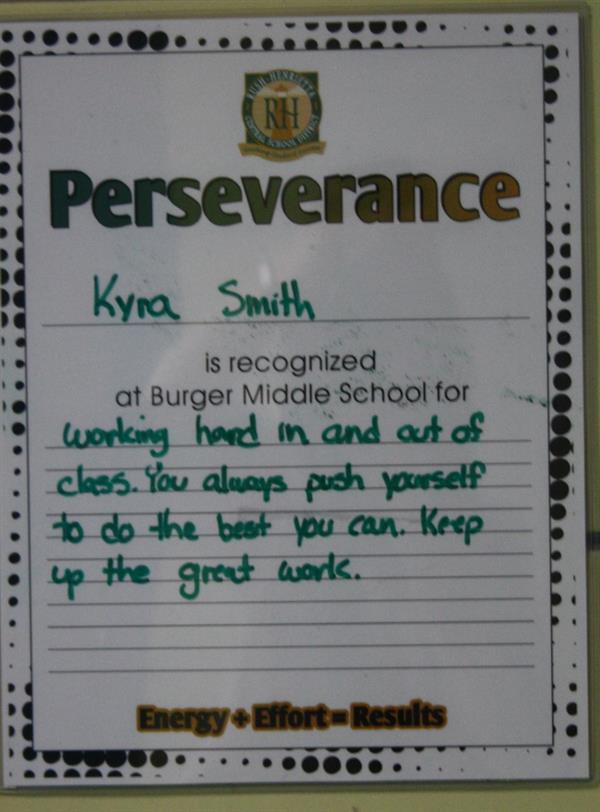 RUSH-HENRIETTA
RH
CENTRAL SCHOOL DISTRICT
Perseverance
Kyra Smith
is recognized
at Burger Middle School for
working hard in and out of
class. You always push yourself
to do the best you can. Keep
up the great work.
Energy + Effort = Results